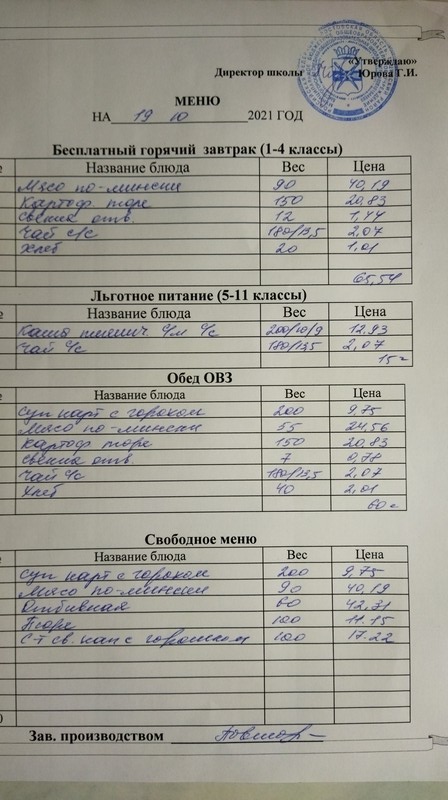 «Утверждаю»
Директор школы Юрова Г.И.
МЕНЮ
НА 19 10 2021 ГОД
Бесплатный горячий завтрак (1-4 классы)
Название блюда Вес Цена
Мясо по-мински 90 40,19
Картоф. пюре 150 20,83
Свекла отв. 12 1,44
Чай с/с 180/13,5 2,07
Хлеб 20 1,01
65,54
Льготное питание (5-11 классы)
Название блюда Вес Цена
Каша пшенич. 200/10/9 12,93
Чай 180/13,5 2,07
15
Обед ОВЗ
Название блюда Вес Цена
Суп карт с горохом 200 9,75
Мясо по-мински 55 24,56
Картоф пюре 150 20,83
Свекла отв. 7 0,78
Чай 180/13,5 2,07
Хлеб 40 2,01
60
Свободное меню
Название блюда Вес Цена
Суп карт с горохом 200 9,75
Мясо по-мински 90 40,19
Отбивная 60 42,31
Пюре 100 11.15
С-т св. кап с горошком 100 17.22
Зав. производством